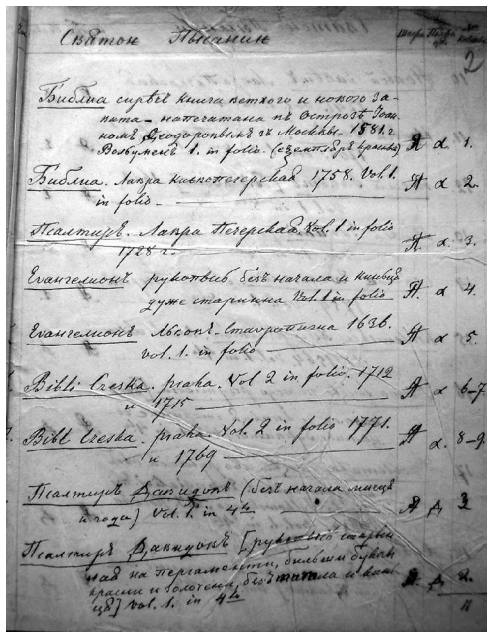 Святои Писания 2
Библиа сиречь книга ветхого и нового за-
вита напечатана въ Острозѣ Іоан-
номъ Ѳеодоровымъ зъ Москвы 1581 г.
1. in folio ( А α 1.
Библиа. Лавра Кивопечерская 1758. Vol. 1. А α 2.
in folio
Псалтиръ. Лавра Печерская Vol. 1 in folio
1728 г. А α 3.
Евангелионъ рукопись безъ начала и
дуже старинна Vol. 1 in folio А α 4.
Евангелионъ Львовъ Ставропигиа 1636. А α 5.
vol. 1. in folio
Bibli Czeska. praha. Vol 2 in folio. 1712
и 1715 А α 6-7
Bibl Czeska. praha. Vol. 2 in folio 1771.
и 1769 А α. 8-9
Псалтиръ Давидовъ (безъ начала
и года) Vol. 1. in 4to А Д
Псалтиръ Давидовъ [
на пергаменти,
краски и золочена, безъ начала и
] Vol. 1. in 4to А Д